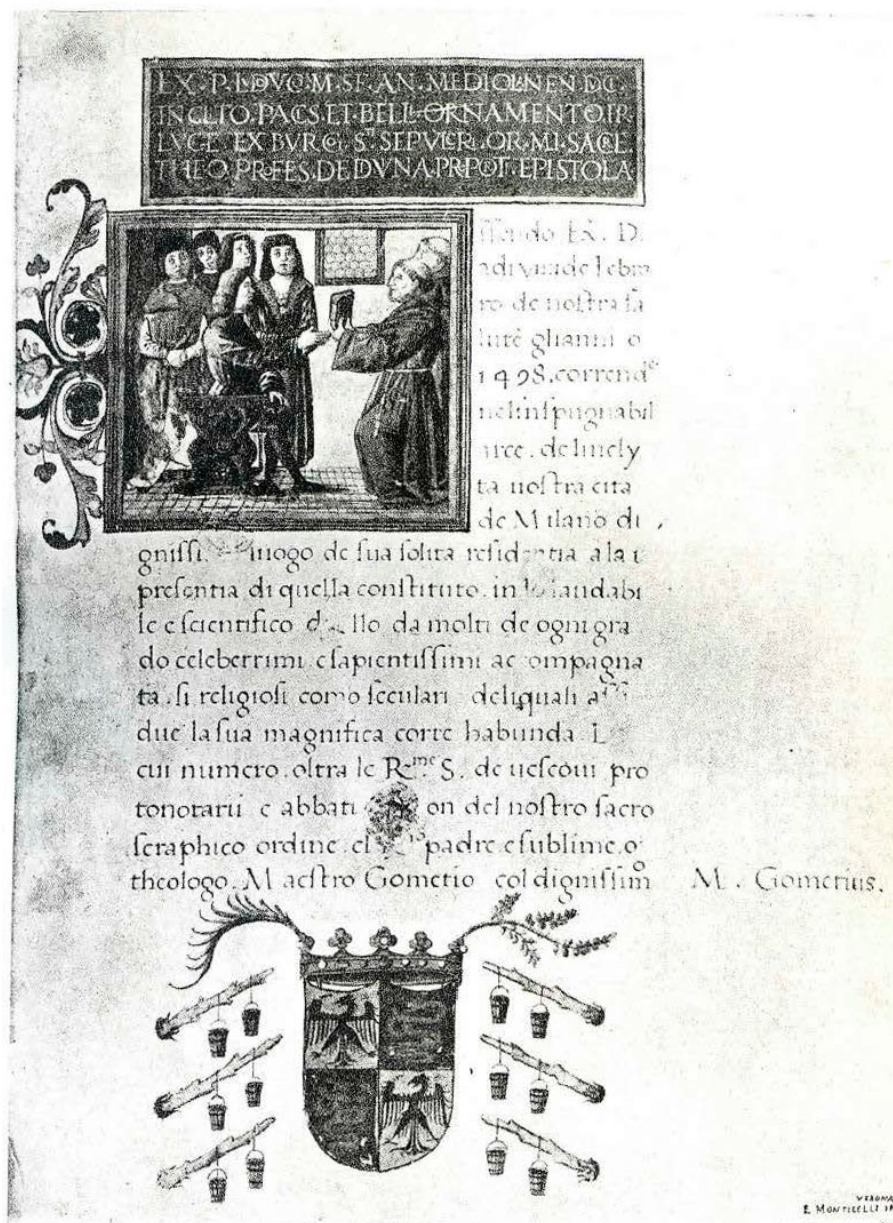 EX . P . LDVC . M . SF . AN . MEDIOLNEN . DC .
INCLTO . PACIS . ET . BELL ORNAMENTO . FR
LVCE . EX BVRGI . Sti . SEPVLCRI . OR . MI . SACRE
THEO . PROFES . DE DVNA . PRPOT . EPISTOLA
ssendo EX . D.
adi viiii de febra
ro de nostra sa
lute glianni o
1498. correndo
nelinspugnabil
arce . delincly
ta nostra cita
de Milano di
gnissi. luogo de sua solita residentia a la
presentia di quella constituto . in laudabi
le e scientifico duello da molti de ogni gra
do celeberrimi e sapientissimi accompagna
ta . si religiosi como seculari deliquali
due la sua magnifica corte habunda.
cui numero . oltra le Rme S. de uescoui pro
tonotarii e abbati on del nostro sacro
seraphico ordine . el padre e sublime .
theologo . Maestro Gometio col dignissimo
M . Gometius .
VERONA
E MONTICELLI